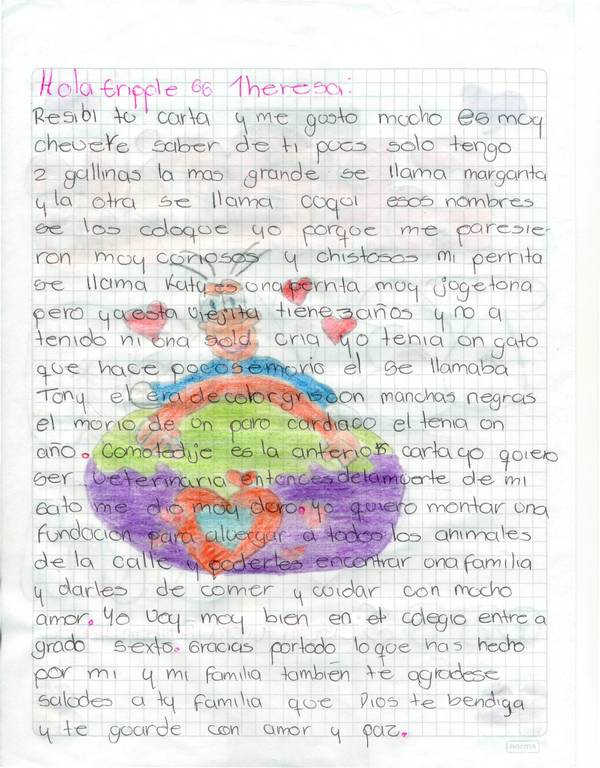 Hola Gripple 66 Theresa:
Resibi tu carta y me gusto mucho es muy
chevere saber de ti pues solo tengo
2 gallinas la mas grande se llama margarita
y la otra se llama coqui esos nombres
se los coloque yo porque me paresie-
ron muy coriosos y chistosos mi perrita
se llama Katy es una perrita muy jogetona
pero ya esta viejita tiene 3 años y no a
tenido ni una sola cria yo tenia un gato
que hace poco semorio el se llamaba
Tony el era de color gris con manchas negras
el morio de un paro cardiaco el tenia un
año. Como te dije es la anterior carta yo quiero
ser veterinaria entonces de la muerte de mi
gato me dio muy duro. Yo quiero montar una
fundacion para alvergar a todos los animales
de la calle y poderles encontrar una familia
y darles de comer y cuidar con mucho
amor. Yo voy muy bien en el colegio entre a
grado sexto. Gracias por todo lo que has hecho
por mi y mi familia también te agradese
saludes a tu familia que Dios te bendiga
y te guarde con amor y paz.
norma